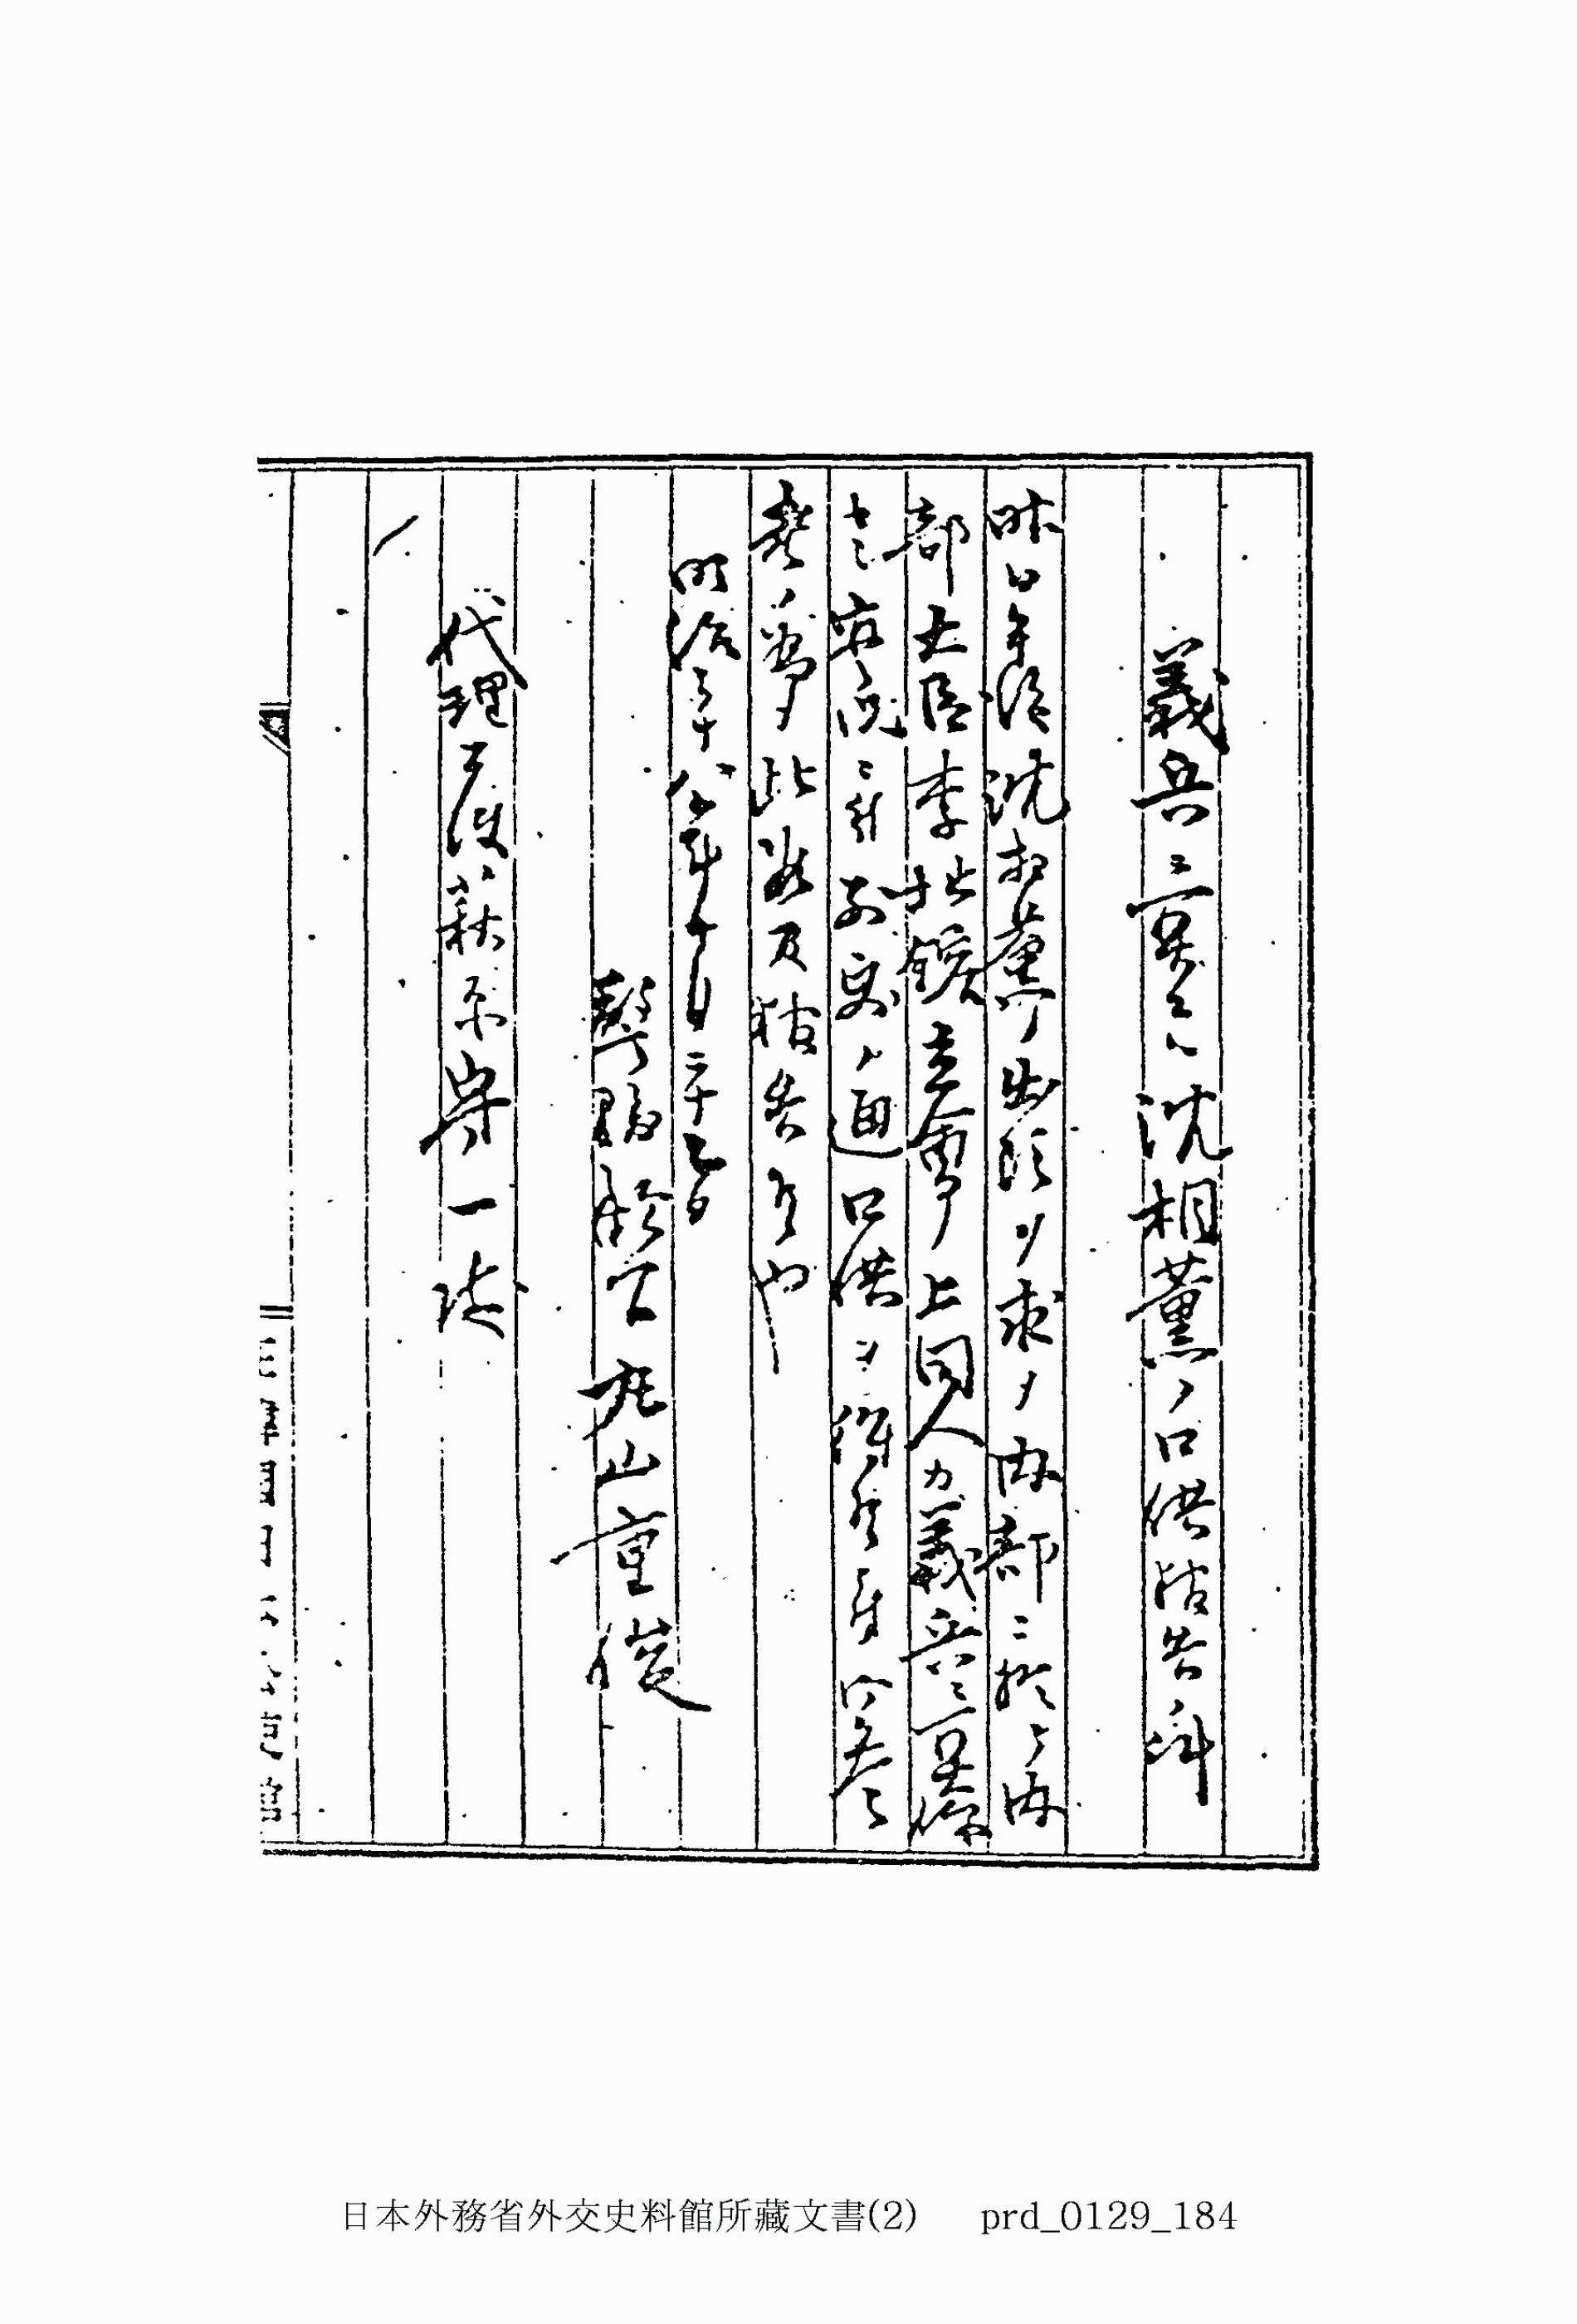 義兵ニ関スル沈相薫ノ口供報告ノ件
昨日午後沈相薫ノ出頭ヲ求メ内部ニ於テ内
部大臣李址鎔立會ノ上同人カ義兵ニ関係
セシ ニ付別紙ノ通口供ヲ得候ニ付
為メ此段及報告候也
明治三十八年十月二十七日
警務顧問丸山重俊
代理公使萩原守一殿
日本外務省外交史料館所藏文書(2) prd_0129_184